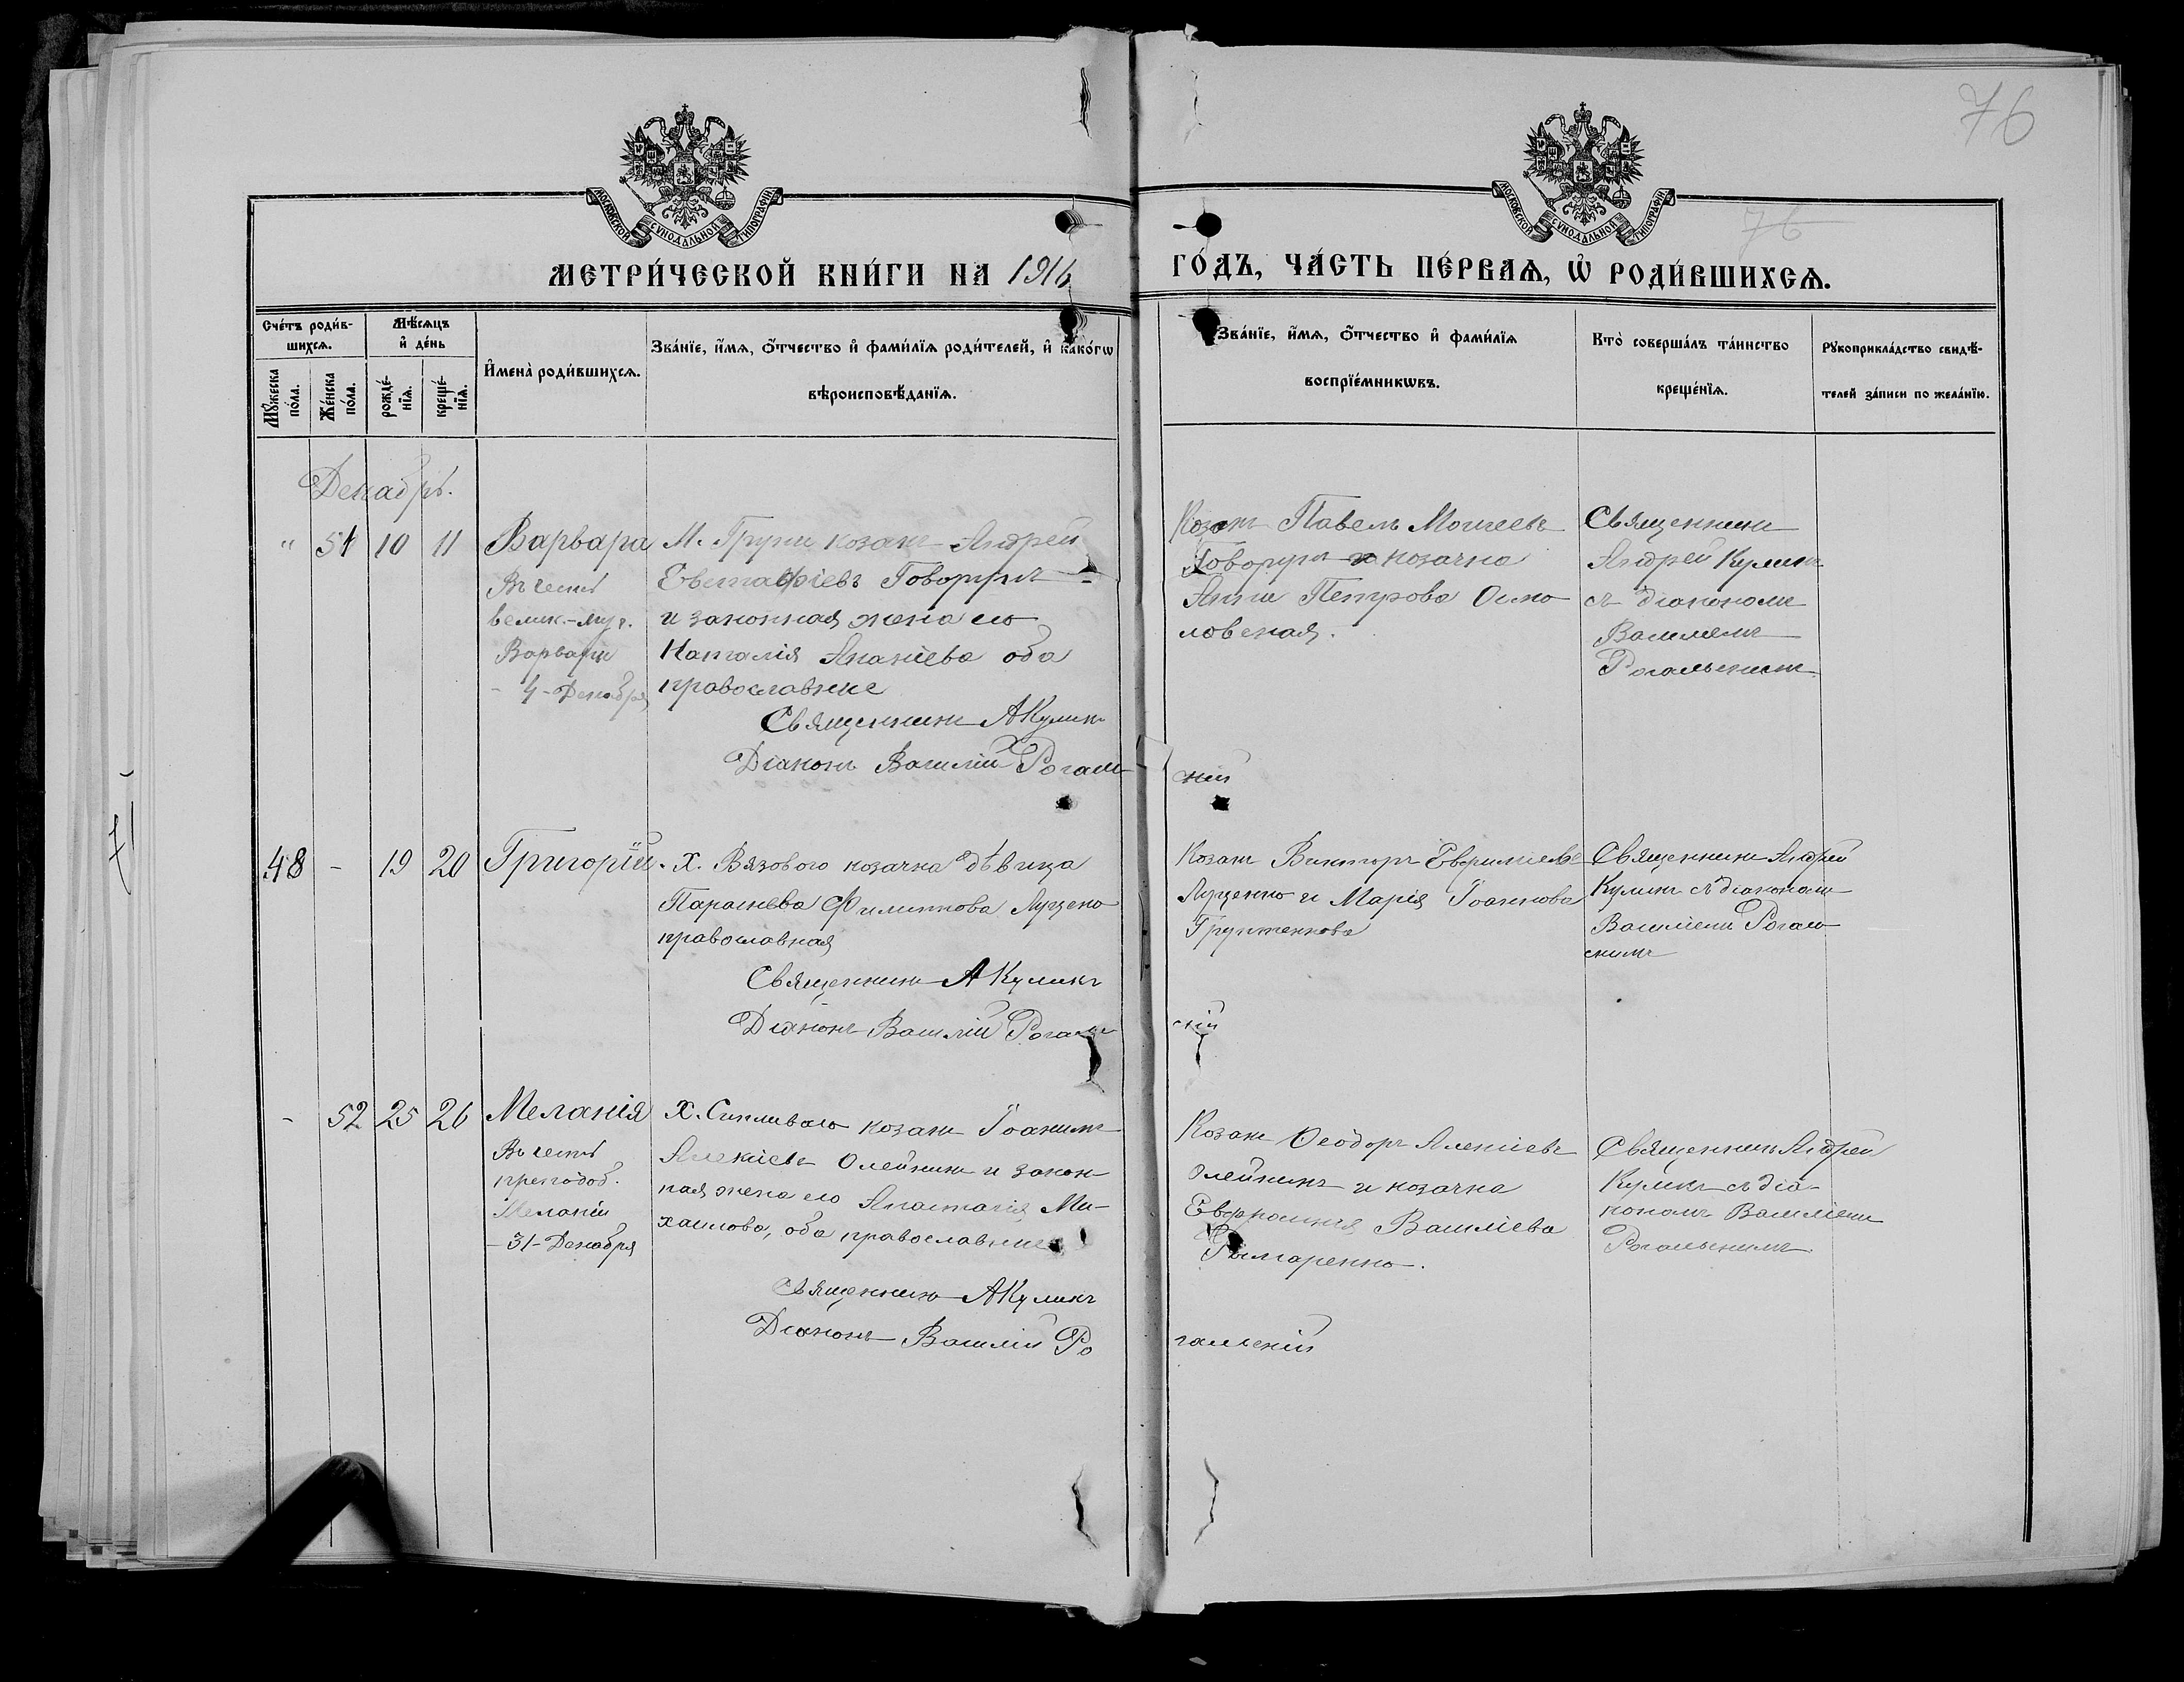 76
МОСКОВСКОЙ СѴНОДАЛЬНОЙ ТИПОГРАФІИ
МОСКОВСКОЙ СѴНОДАЛЬНОЙ ТИПОГРАФІИ
76
МЕТРИ́ЧЕСКОЙ КНИ́ГИ НА 1916
ГО́ДЪ, ЧА́СТЬ ПЕ́РВАѦ, Ѡ҆ РОДИ́ВШИХСѦ.
Сче́тъ роди́в-
шихсѧ.
Мѣ́сѧцъ
и҆ де́нь
Мꙋ́жеска
по́ла.
Же́нска
по́ла.
рожде́-
нїѧ.
креще́-
нїѧ.
И҆мена̀ роди́вшихсѧ.
Зва́нїе, и҆́мѧ, ѻ҆́тчество и҆ фами́лїѧ роди́телей, и҆ како́гѡ
вѣроисповѣ́данїѧ.
Зва́нїе, и҆́мѧ, ѻ҆́тчество и҆ фами́лїѧ
воспрїе́мникѡвъ.
Кто̀ соверша́лъ та́инство
креще́нїѧ.
Рꙋкоприкла́дство свидѣ́-
телей за́писи по жела́нїю.
Декабрь.
" 51 10 11
Варвара
Въ честь
велик.-муч.
Варвары
- 4 - Декабря
М. Груни козакъ Андрей
Евстафіевъ Говорунъ
и законная жена его
Наталія Ананіева оба
православные
Священникъ А Куликъ
Діаконъ Василій Рогаль
скій
Козакъ Павелъ Моисеевъ
Говорунъ и козачка
Анна Петрова Осмо
ловская.
Священникъ
Андрей Куликъ
съ діакономъ
Василіемъ
Рогальскимъ
48 - 19 20
Григорій
Х. Вязового козачка дѣвица
Параскева Филиппова Луценко
православная
Священникъ А Куликъ
Діаконъ Василій Рогаль
скій
Козакъ Викторъ Евфиміевъ
Луценко и Марія Іоаннова
Священникъ Андрей
Куликъ съ діакономъ
Василіемъ Рогаль
скимъ
- 52 25 26
Меланія
Въ честь
преподоб.
Меланіи
- 31 - Декабря
Х. Сипливаго козакъ Іоакимъ
Алексіевъ Олейникъ и закон
ная жена его Анастасія Ми-
хаилова, оба православные
Священникъ А Куликъ
Діаконъ Василій Ро
гальскій
Козакъ Ѳеодоръ Алексіевъ
Олейникъ и козачка
Евфросинія Василіева
Рымаренко.
Священникъ Андрей
Куликъ съ діа-
кономъ Василіемъ
Рогальскимъ
71